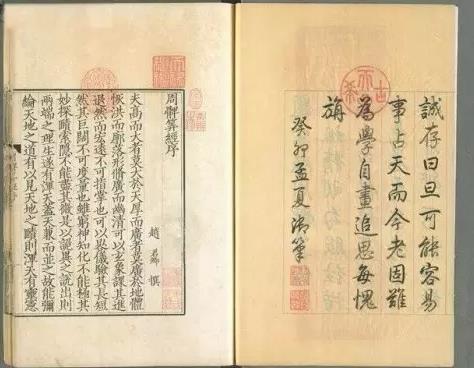 誠存曰旦可能容易
事占天而今老固難
為學自畫追思每愧
旃
癸卯孟夏御筆
周髀算經序
趙 撰
夫高而大者莫大於天厚而廣者莫廣於地體
恢洪而廓落形脩廣而幽清可以玄象課其進
退然而宏遠不可指掌也可以晷儀驗其長短
然其巨闊不可度量也雖窮神知化不能極其
妙探賾索隱不能盡其微是以詭異之說出則
兩端之理生遂有渾天蓋天兼而並之故能彌
綸天地之道有以見天地之賾則渾天有靈憲